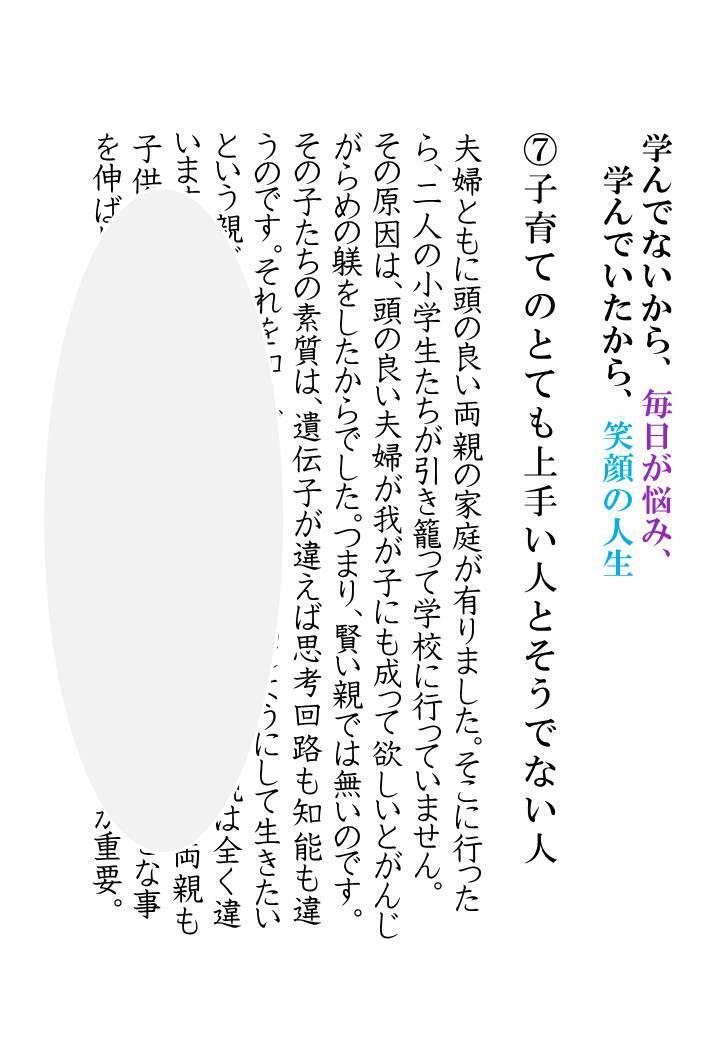 学んでないから、毎日が悩み、
学んでいたから、笑顔の人生
⑦子育てのとても上手い人とそうでない人
夫婦ともに頭の良い両親の家庭が有りました。そこに行った
ら、二人の小学生たちが引き籠って学校に行っていません。
その原因は、頭の良い夫婦が我が子にも成って欲しいとがんじ
がらめの躾をしたからでした。つまり、賢い親では無いのです。
その子たちの素質は、遺伝子が違えば思考回路も知能も違
うのです。それを ようにして生きたい
という親 は全く違
います 両親も
子供 な事
を伸ば 重要。